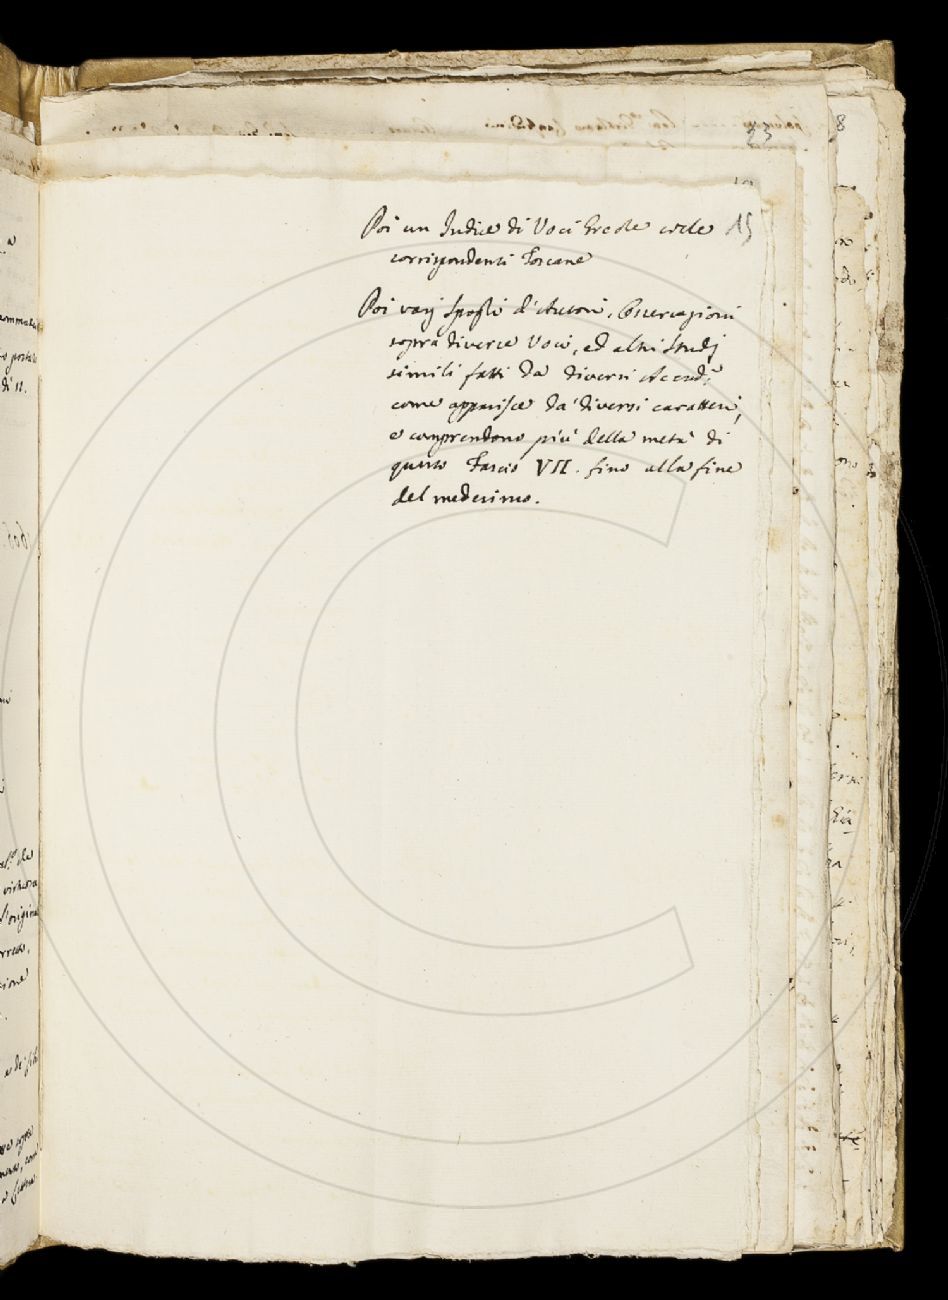 23
8
15
Poi un Indice di Voci Greche colle
corrispondenti Toscane
Poi varj Spogli d'Autori, Osservazioni
sopra diverse Voci, ed altri Studj
simili fatti da diversi Accad.ci
come apparisce da' diversi caratteri,
e comprendono più della metà di
questo Fascio VII. fino alla fine
del medesimo.